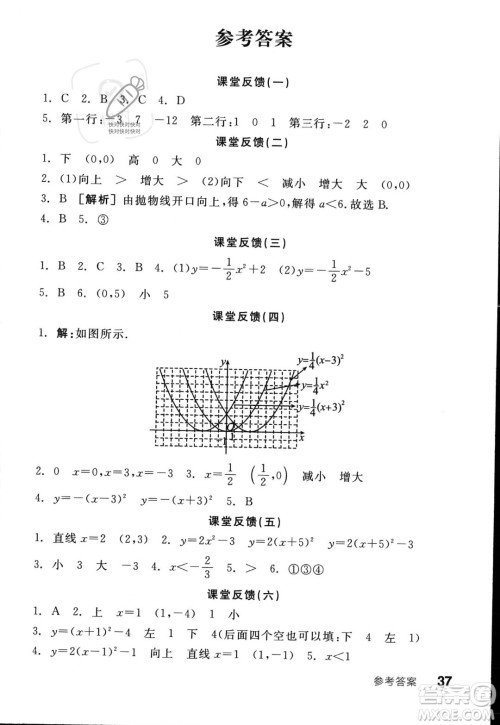 参考答案
课堂反馈(一)
1. C 2. B 3. C 4. D
5. 第一行:-3 7 -12 第二行:1 0 1 第三行:-2 2 0
课堂反馈(二)
1. 下 (0,0) 高 0 大 0
2. (1)向上 > 增大 > (2)向下 < 减小 增大 <
3. B [解析] 由抛物线开口向上,得6-a>0,解得a<6.故选B.
4. B 5. ③
课堂反馈(三)
1. B 2. A 3. B 4. (1)y=-1/2x²+2 (2)y=-1/2x²-5
5. B 6. (0,5) 小 5
课堂反馈(四)
1. 解:如图所示.
y y=1/4(x-3)²
y=1/4x²
y=1/4(x+3)²
-1 1 x
2. 0 x=0,x=3,x=-3 3. x=1/2 (1/2,0) 减小 增大
4. y=(x-3)² y=-(x+3)² 5. B
课堂反馈(五)
1. 直线x=2 (2,3) 2. y=2(x+5)²+3 y=2(x+5)²-3
3. 小 3 大 -3 4. x<-2/3 5. > 6. ①③④
课堂反馈(六)
1. A 2. 上 x=1 (1,-4) 1 小
3. y=(x+1)²-4 左 1 下 4(后面四个空也可填:下 4 左 1)
4. y=(x-1)²-4 (1,-4) 直线x=1 5. x<1
参考答案 37
快对快对快对
快对快对快对
答案圈
MXQE.COM